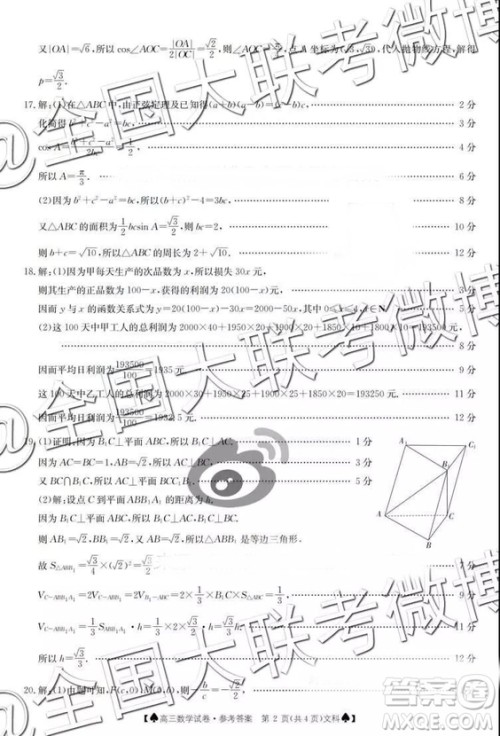 又|OA|=√6,所以cos∠AOC=|OA|/2|OC|=√2/2,则∠AOC= 点A坐标为(√3,√3),代入抛物线方程,解得
p=√3/2.
17.解:(1)在△ABC中,由正弦定理及已知得(a+b)(a-b)=c²-bc, 2分
化简得b²+c²-a²=bc, 4分
cos A=b²+c²-a²/2bc=1/2. 5分
所以A=π/3. 6分
(2)因为b²+c²-a²=bc,所以(b+c)²-4=3bc. 8分
又△ABC的面积为1/2bcsin A=√3/2,则bc=2, 10分
则b+c=√10,所以△ABC的周长为2+√10. 12分
18.解:(1)因为甲每天生产的次品数为x,所以损失30x元,
则其生产的正品数为100-x,获得的利润为20(100-x)元, 2分
因而y与x的函数关系式为y=20(100-x)-30x=2000-50x,其中0≤x≤4, 4分
(2)这100天中甲工人的总利润为2000×40+1950×20+1900×20+1850×10+1800×10=193500元,
8分
因而平均日利润为193500/100=1935元. 9分
这100天中乙工人的总利润为2000×30+1950×25+1900×20+1850×20=193250元.
12分
19.(1)证明:因为B₁C⊥平面ABC,所以B₁C⊥AC. 1分
因为AC=BC=1,AB=√2,所以AC⊥BC. 3分
又BC∩B₁C=C,所以AC⊥平面 5分
(2)解:设点C到平面ABB₁A₁的距离为h.
因为B₁C⊥平面ABC,所以B₁C⊥AC,B₁C⊥BC,
则AB₁=√2,BB₁=√2,又AB=√2,所以△ABB₁是等边三角形.
故S△ABB₁=√3/4×(√2)²=√3/2
V C-ABB₁A₁=2V C-ABB₁=2V B₁-ABC=2×1/3×B₁C×S△ABC=1/3, 9分
V C-ABB₁A₁=1/3S ABB₁A₁·h=1/3×2×√3/2·h=1/3, 11分
所以h=√3/3. 12分
20.解:(1)由题可知,F(c,0),B(0,b),则-b/c=-√2/2
A₁
C₁
B₁
A
C
B
♠高三数学试卷·参考答案 第2页(共4页)文科♠
@全国大联考微博
@全国大联考微博
@全国大联考微博
答案圈